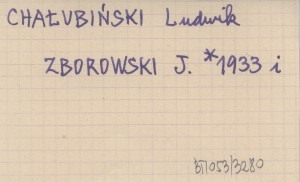 CHAŁUBIŃSKI Ludwik
ZBOROWSKI J. *1933 i
BT1053/3280